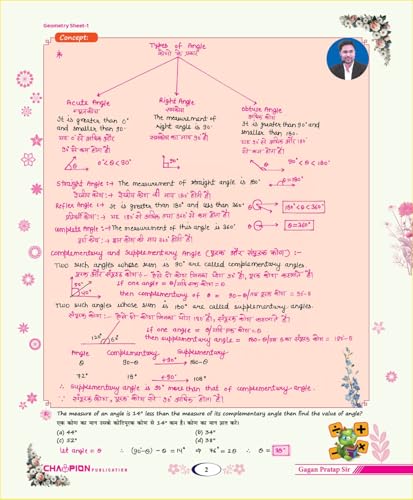 Geometry Sheet-1
Concept:
Types of Angle
कोणों के प्रकार
Acute Angle
न्यूनकोण
It is greater than 0°
and smaller than 90°
यह 0° से अधिक और
90° से कम होता है।
0°<θ<90°
Right Angle
समकोण
The measurement of
right angle is 90°
समकोण का माप 90° है
90°
Obtuse Angle
अधिक कोण
It is greater than 90° and
smaller than 180°
यह 90° से अधिक और 180°
से कम होता है।
90°<θ<180°
Straight Angle :→ The measurement of straight angle is 180°
θ=180°
Reflex Angle :→ It is greater than 180° and less than 360°
180°<θ<360°
Complete Angle :→ The measurement of this angle is 360°
θ=360°
Complementary and Supplementary Angle (पूरक और संपूरक कोण) :-
Two such angles whose sum is 90° are called complementary angles
if one angle = θ/
then complement of θ = 90-θ/
Two such angles whose sum is 180° are called supplementary angles.
if one angle = θ/
then supplementary angle = 180-θ/
120° 60°
Angle Complementary Supplementary
θ 90-θ +90° 180-θ
72° 18° +90° 108°
∴ Supplementary angle is 90° more than that of complementary angle.
The measure of an angle is 14° less than the measure of its complementary angle then find the value of angle?
एक कोण का माप उसके कोटिपूरक कोण से 14° कम है। कोण का मान ज्ञात करें।
(a) 44° (b) 34°
(c) 52° (d) 38°
Let angle = θ ∴ (90-θ) - θ = 14° ⇒ 76° = 2θ ∴ θ = 38°
CHAMPION PUBLICATION
2
Gagan Pratap Sir